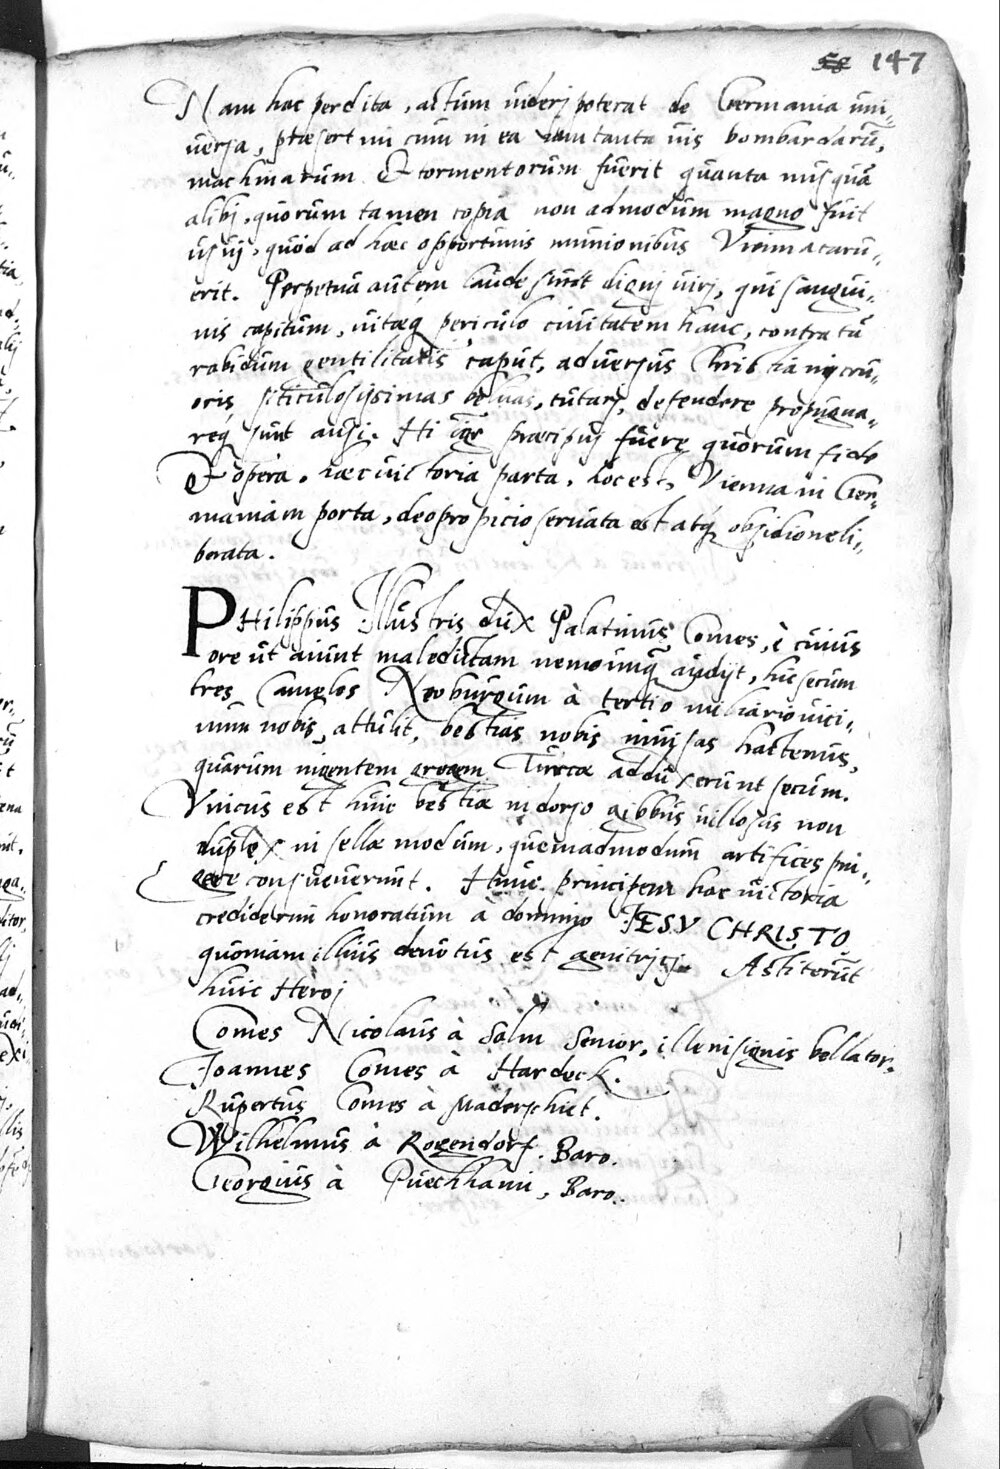 58 147
Nam hac perdita, actum videri poterat de Germania uni„
versa, præsertim cum in ea tanta vis bombardarū,
machinarum & tormentorum fuerit quanta nusquā
alibi, quorum tamen copia non admodum magno fuit
usui, quòd ad hæc opportunis munionibus Vienna caru„
erit. Perpetua autem laude sunt digni viri, qui sangui„
nis capitum, vitæq periculo civitatem hanc, contra tā
rabidum gentilitatis caput, adversus Christiani cru„
oris siticulosissimas beluas, tutari, defendere propugna„
req sunt ausi. Hi præcipui fuere quorum fide
& opera, hæc victoria parta, hoc est, Vienna in Ger„
maniam porta, deo propicio servata est atq obsidione li„
berata.
PHilippus Illustris dux Palatinus Comes, è cuius
ore ut aiunt maledictam nemo unq audijt, hic secum
tres Camelos Neoburgum à tertio miliario vici„
num nobis, attulit, bestias nobis invisas hactenus,
quarum ingentem gregem Turcæ adduxerunt secum.
Unicus est huic bestiæ in dorso gibbus villosus non
duplex in sellæ modum, quemadmodum artifices pin„
gere consueverunt. Hunc principem hac victoria
crediderim honoratum à domino JESU CHRISTO
quoniam illius devotus est genitrici. Astiterūt
huic Heroi
Comes Nicolaus à Salm Senior, ille insignis bellator.
Joannes Comes à Hardeck.
Rupertus Comes à Maderschiet.
Wilhelmus à Rogendorf. Baro.
Georgius à Puechhaim, Baro.